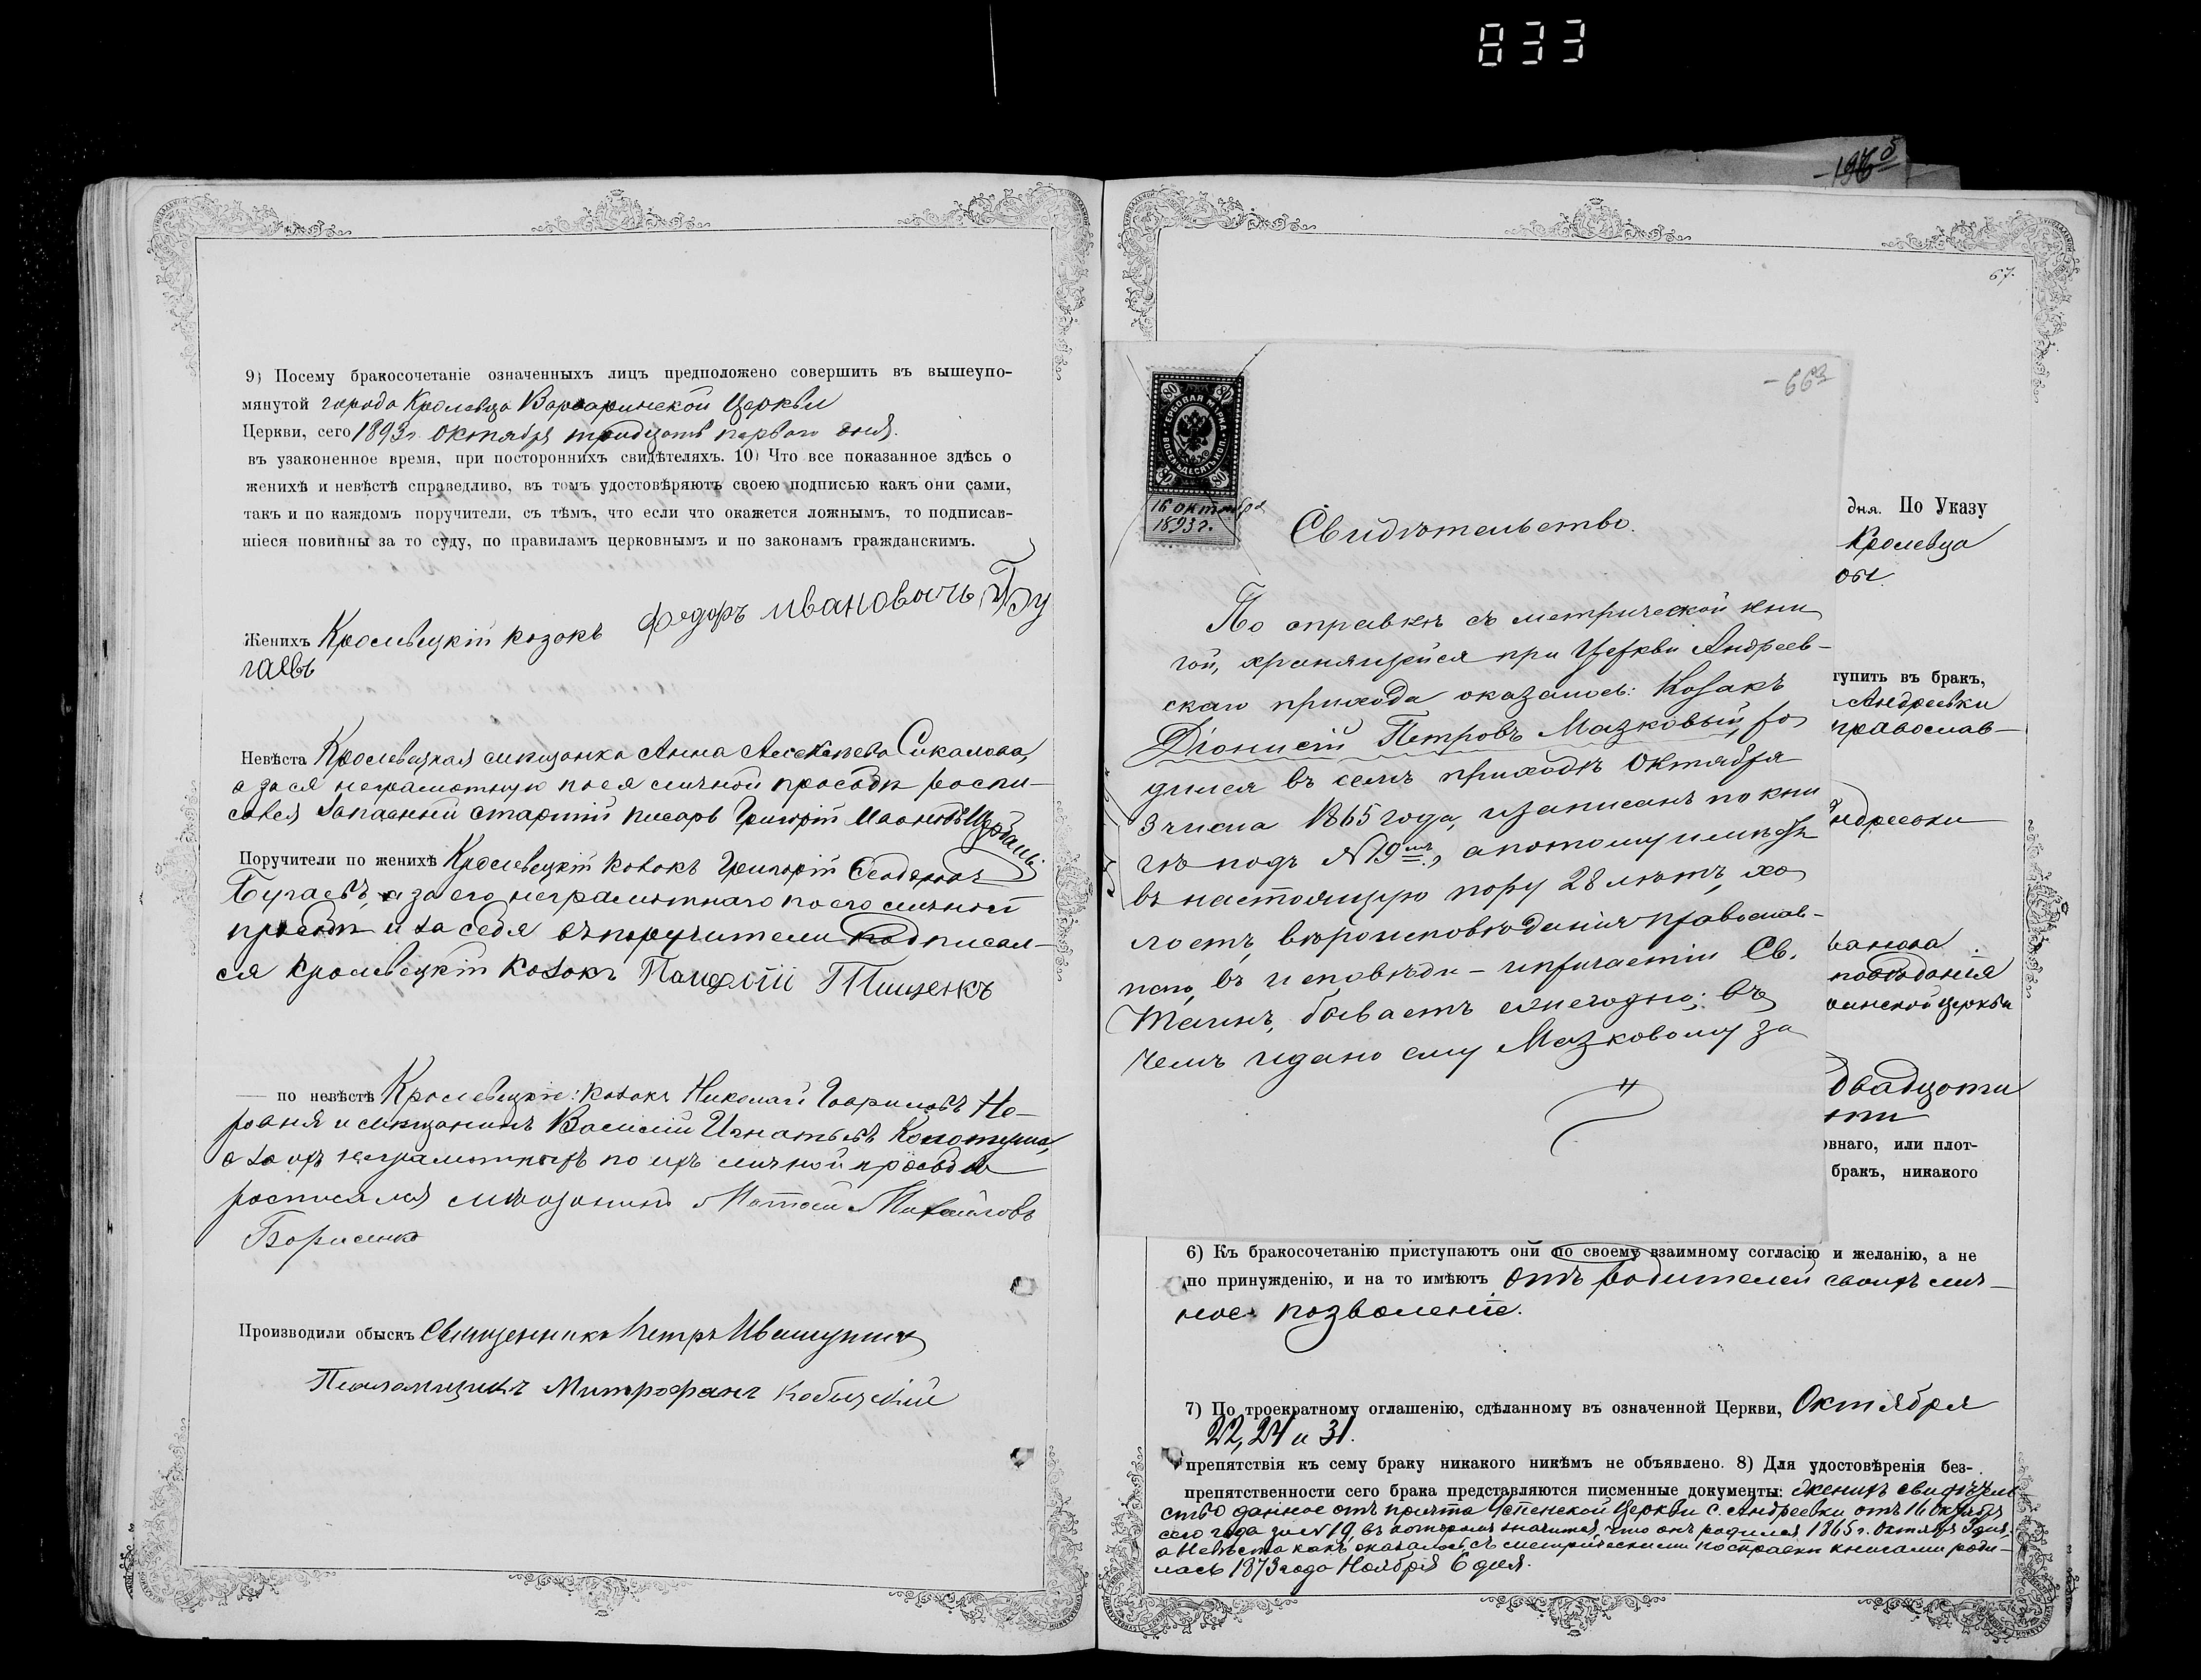 833
196 б
9) Посему бракосочетаніе означенныхъ лицъ предположено совершить въ вышеупо-
мянутой города Кролевца Варваринской Церкви
Церкви, сего 1893 г. Октября тридцать перваго дня.
въ узаконенное время, при постороннихъ свидѣтеляхъ. 10) Что все показанное здѣсь о
женихѣ и невѣстѣ справедливо, въ томъ удостовѣряютъ своею подписью какъ они сами,
такъ и по каждомъ поручители, съ тѣмъ, что если что окажется ложнымъ, то подписав-
шіеся повинны за то суду, по правиламъ церковнымъ и по законамъ гражданскимъ.
Женихъ Кролевецкій козакъ Федоръ Ивановичъ Бу
гаевъ
Невѣста Кролевецкая мѣщанка Анна Алексѣева Сикалова,
а за ея неграмотную по ея личной просьбѣ роспи-
сался Запасный старшій писарь Григорій
Поручители по женихѣ Кролевецкій козакъ Григорій
Бугаевъ, а за его неграмотнаго по его личной
просьбѣ и за себя съ поручители подписал-
ся Кролевецкій козакъ Тищенко
— по невѣстѣ Кролевецкіе: козакъ Николай Гавриловъ Не-
рованя и мѣщанинъ Василій Игнатьевъ Колотуша,
а за ихъ неграмотныхъ по ихъ личной просьбѣ
росписался мѣщанинъ Михайловъ
Борисенко
Производили обыскъ Священникъ Петръ
Псаломщикъ Митрофанъ
67.
-66 а
16 октября
1893 г.
ГЕРБОВАЯ МАРКА
ВОСЕМЬДЕСЯТЪ КОП.
80 80
80 80
Свидѣтельство.
По справкѣ съ метрической кни
гой, хранящейся при Церкви Андреев-
скаго прихода оказалось: Козакъ
Діонисій Петровъ Мазковый, ро
дился въ семъ приходѣ Октября
3 числа 1865 года, и записанъ по кни
гѣ подъ № 19мъ, а потому имѣетъ
въ настоящую пору 28 лѣтъ, хо
лостъ, вѣроисповѣданія православ-
наго, въ исповѣди – и причастіи Св.
Таинъ, бываетъ ежегодно; въ
чемъ и дано ему Мазковому за
дня. По Указу
Кролевца
обы
тупить въ бракъ,
Андреевки
православ-
ндреевки
ванова
повѣданія
инской церкви
двадцати
внаго, или плот-
бракъ, никакого
6) Къ бракосочетанію приступаютъ они по своему взаимному согласію и желанію, а не
по принужденію, и на то имѣютъ отъ родителей своихъ лич-
ное позволеніе.
7) По троекратному оглашенію, сдѣланному въ означенной Церкви, Октября
22, 24 и 31.
препятствія къ сему браку никакого никѣмъ не объявлено. 8) Для удостовѣренія без-
препятственности сего брака представляются писменные документы: женихъ свидѣтель
ство данное отъ причта Успенской Церкви с. Андреевки отъ 16 Октября
сего года за № 19, въ которомъ значится, что онъ родился 1865 г. Октября 3 дня,
а Невѣста какъ оказалось съ метрическими по справкѣ книгами роди-
лась 1873 года Ноября 6 дня.